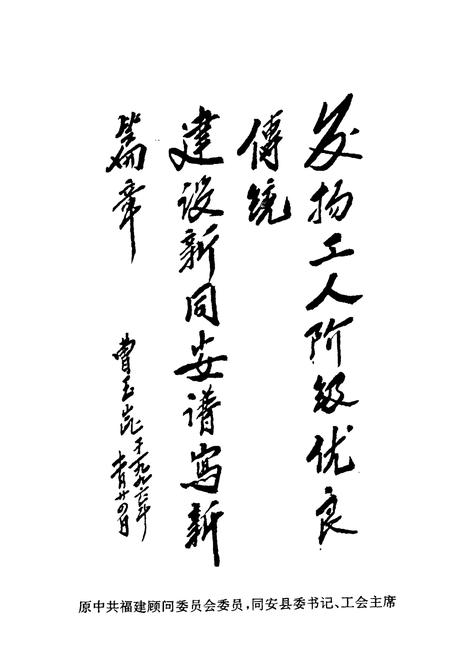 发扬工人阶级优良
傳统
建设新同安谱寫新
篇章
曹玉崑于一九九六年
十一月廿四日
原中共福建顾问委员会委员，同安县委书记、工会主席